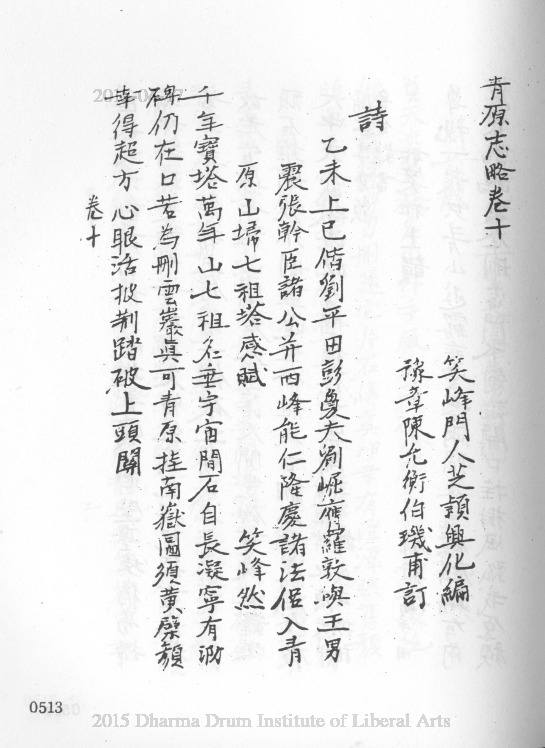 青原志略卷十
笑峰門人芝穎興化編
豫章陳允衡伯璣甫訂
詩
乙未上巳偕劉平田彭夐夫劉崛䧹羅敦嶼王男
震張幹臣諸公并西峰能仁隆慶諸法侣入青
原山埽七祖塔感賦
笑峰然
千年寶塔萬年山七祖名垂宇宙間石自長凝寧有泐
碑仍在口苦為刪雲巖真可青原挂南嶽還須黃檗顏
幸得超方心眼活披荆踏破上頭關
卷十
0513
2015 Dharma Drum Institute of Liberal Arts